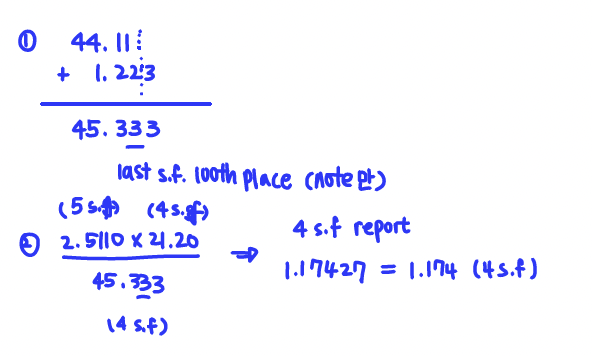 ① 44.11
+ 1.223
45.333
last s.f. 100th place (note 만)
(5 s.f) (4 s.f)
② 2.5110 x 21.20
45.333
(4 s.f)
⇒ 4 s.f report
1.17427 = 1.174 (4 s.f)